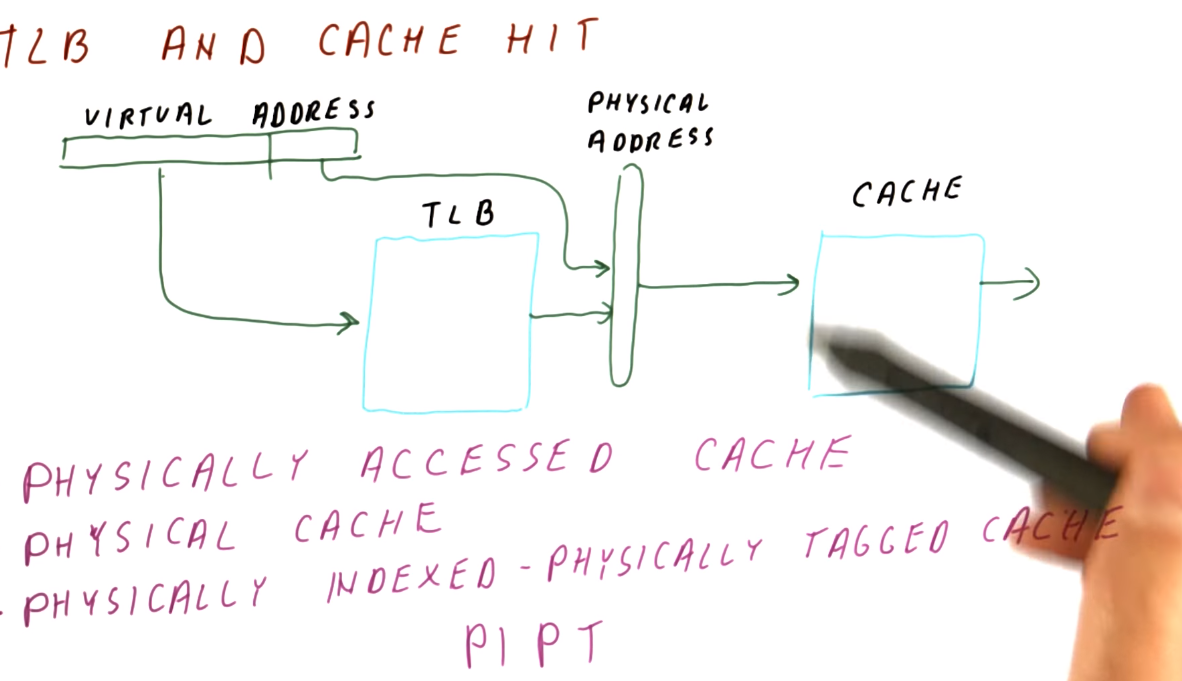 TLB AND CACHE HIT
VIRTUAL ADDRESS
PHYSICAL
ADDRESS
TLB
CACHE
PHYSICALLY ACCESSED CACHE
PHYSICAL CACHE
PHYSICALLY INDEXED - PHYSICALLY TAGGED CACHE
PIPT